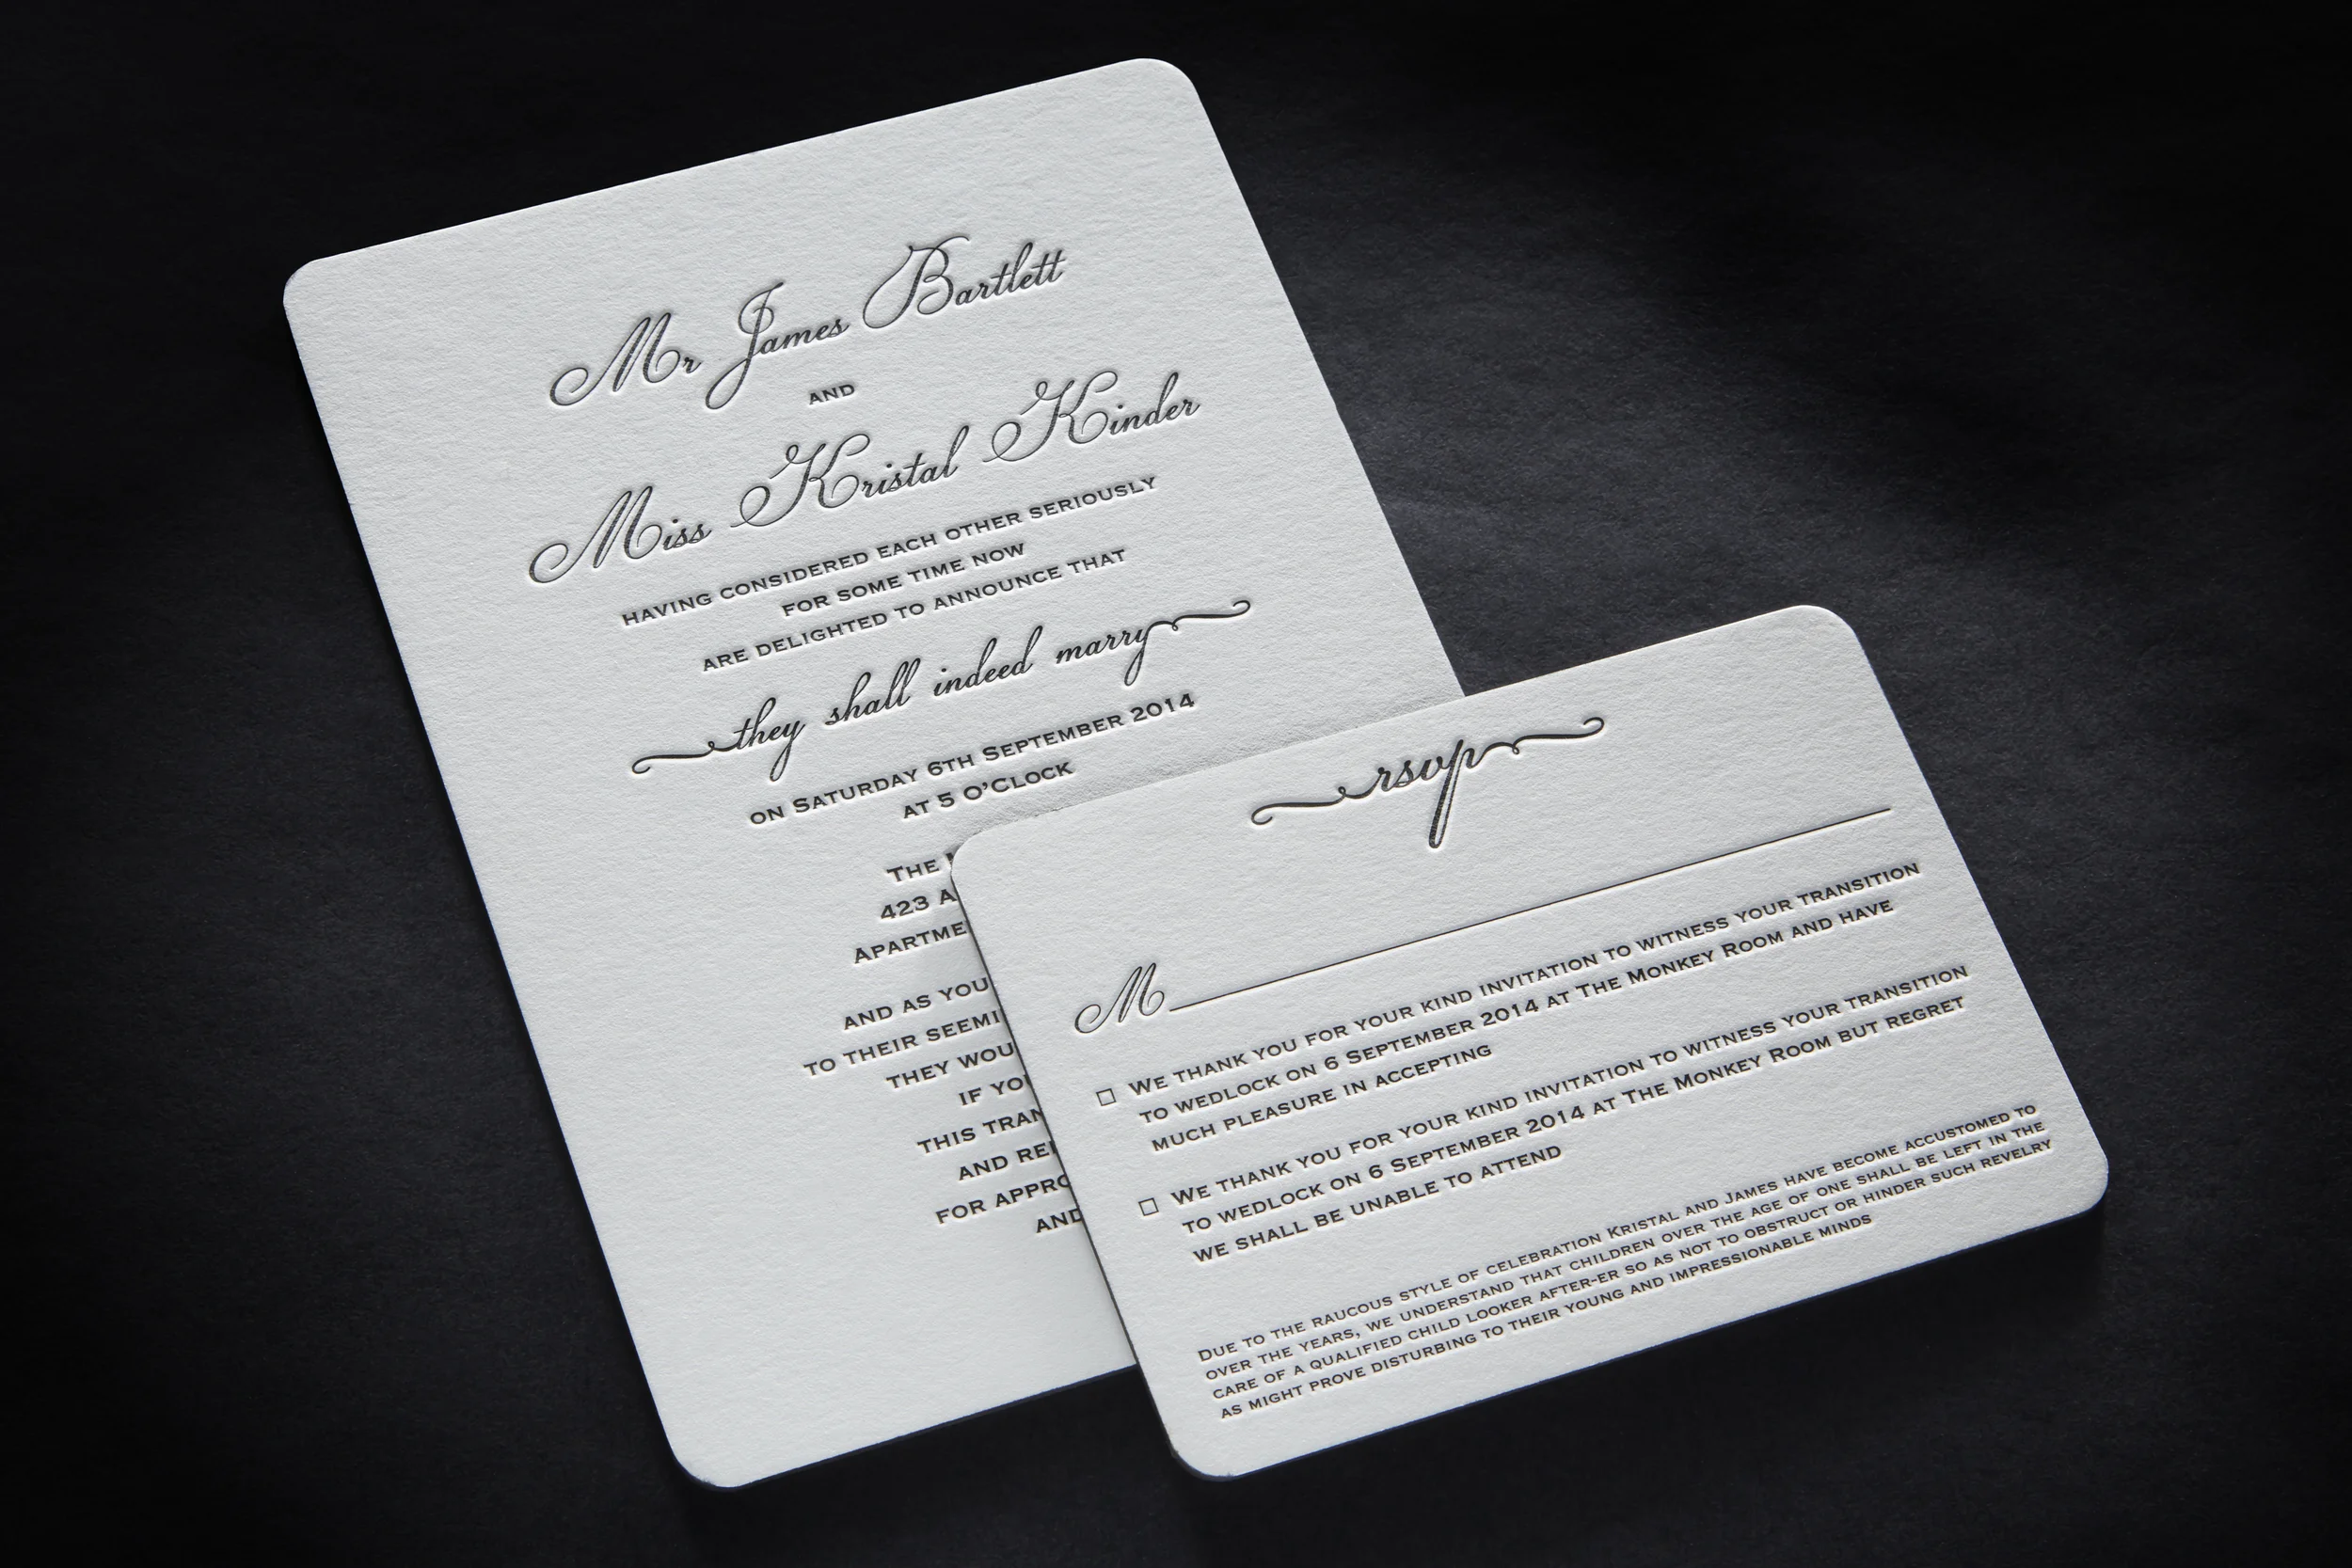 Mr James Bartlett
AND
Miss Kristal Kinder
HAVING CONSIDERED EACH OTHER SERIOUSLY
FOR SOME TIME NOW
ARE DELIGHTED TO ANNOUNCE THAT
they shall indeed marry
ON SATURDAY 6TH SEPTEMBER 2014
AT 5 O'CLOCK
THE
423
AND AS YOU
TO THEIR
THEY
IF
THIS
AND
FOR
AND
rsvp
M
WE THANK YOU FOR YOUR KIND INVITATION TO WITNESS YOUR TRANSITION
TO WEDLOCK ON 6 SEPTEMBER 2014 AT THE MONKEY ROOM AND HAVE
MUCH PLEASURE IN ACCEPTING
WE THANK YOU FOR YOUR KIND INVITATION TO WITNESS YOUR TRANSITION
TO WEDLOCK ON 6 SEPTEMBER 2014 AT THE MONKEY ROOM BUT REGRET
WE SHALL BE UNABLE TO ATTEND
DUE TO THE RAUCOUS STYLE OF CELEBRATION KRISTAL AND JAMES HAVE BECOME ACCUSTOMED TO
OVER THE YEARS, WE UNDERSTAND THAT CHILDREN OVER THE AGE OF ONE SHALL BE LEFT IN THE
CARE OF A QUALIFIED CHILD LOOKER AFTER-ER SO AS NOT TO OBSTRUCT OR HINDER SUCH REVELRY
AS MIGHT PROVE DISTURBING TO THEIR YOUNG AND IMPRESSIONABLE MINDS